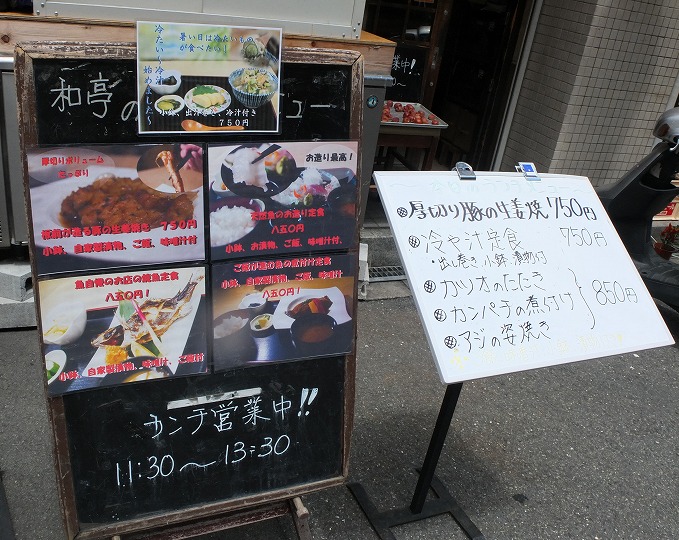 和亭の
ュー
冷たい～冷汁
始めました～
暑い日は冷たいもの
が食べたい！
小鉢、出汁巻き、冷汁付き
750円
厚切りボリューム
たっぷり
豚の生姜焼き 750円
小鉢、自家製漬物、ご飯、味噌汁付
お造り最高！
天然魚のお造り定食
八五〇円！
小鉢、お漬物、ご飯、味噌汁付、
魚自慢のお店の焼魚定食
八五〇円！
小鉢、自家製漬物、味噌汁、ご飯付
ご飯が進む魚の煮付け定食
八五〇円！
小鉢、自家製漬物、ご飯、味噌汁付
ランチ営業中!!
11:30～13:30
営業中!!
厚切り豚の生姜焼 750円
冷や汁定食 750円
・出し巻き 小鉢 漬物付
カツオのたたき
カンパチの煮付け 850円
アジの姿焼き